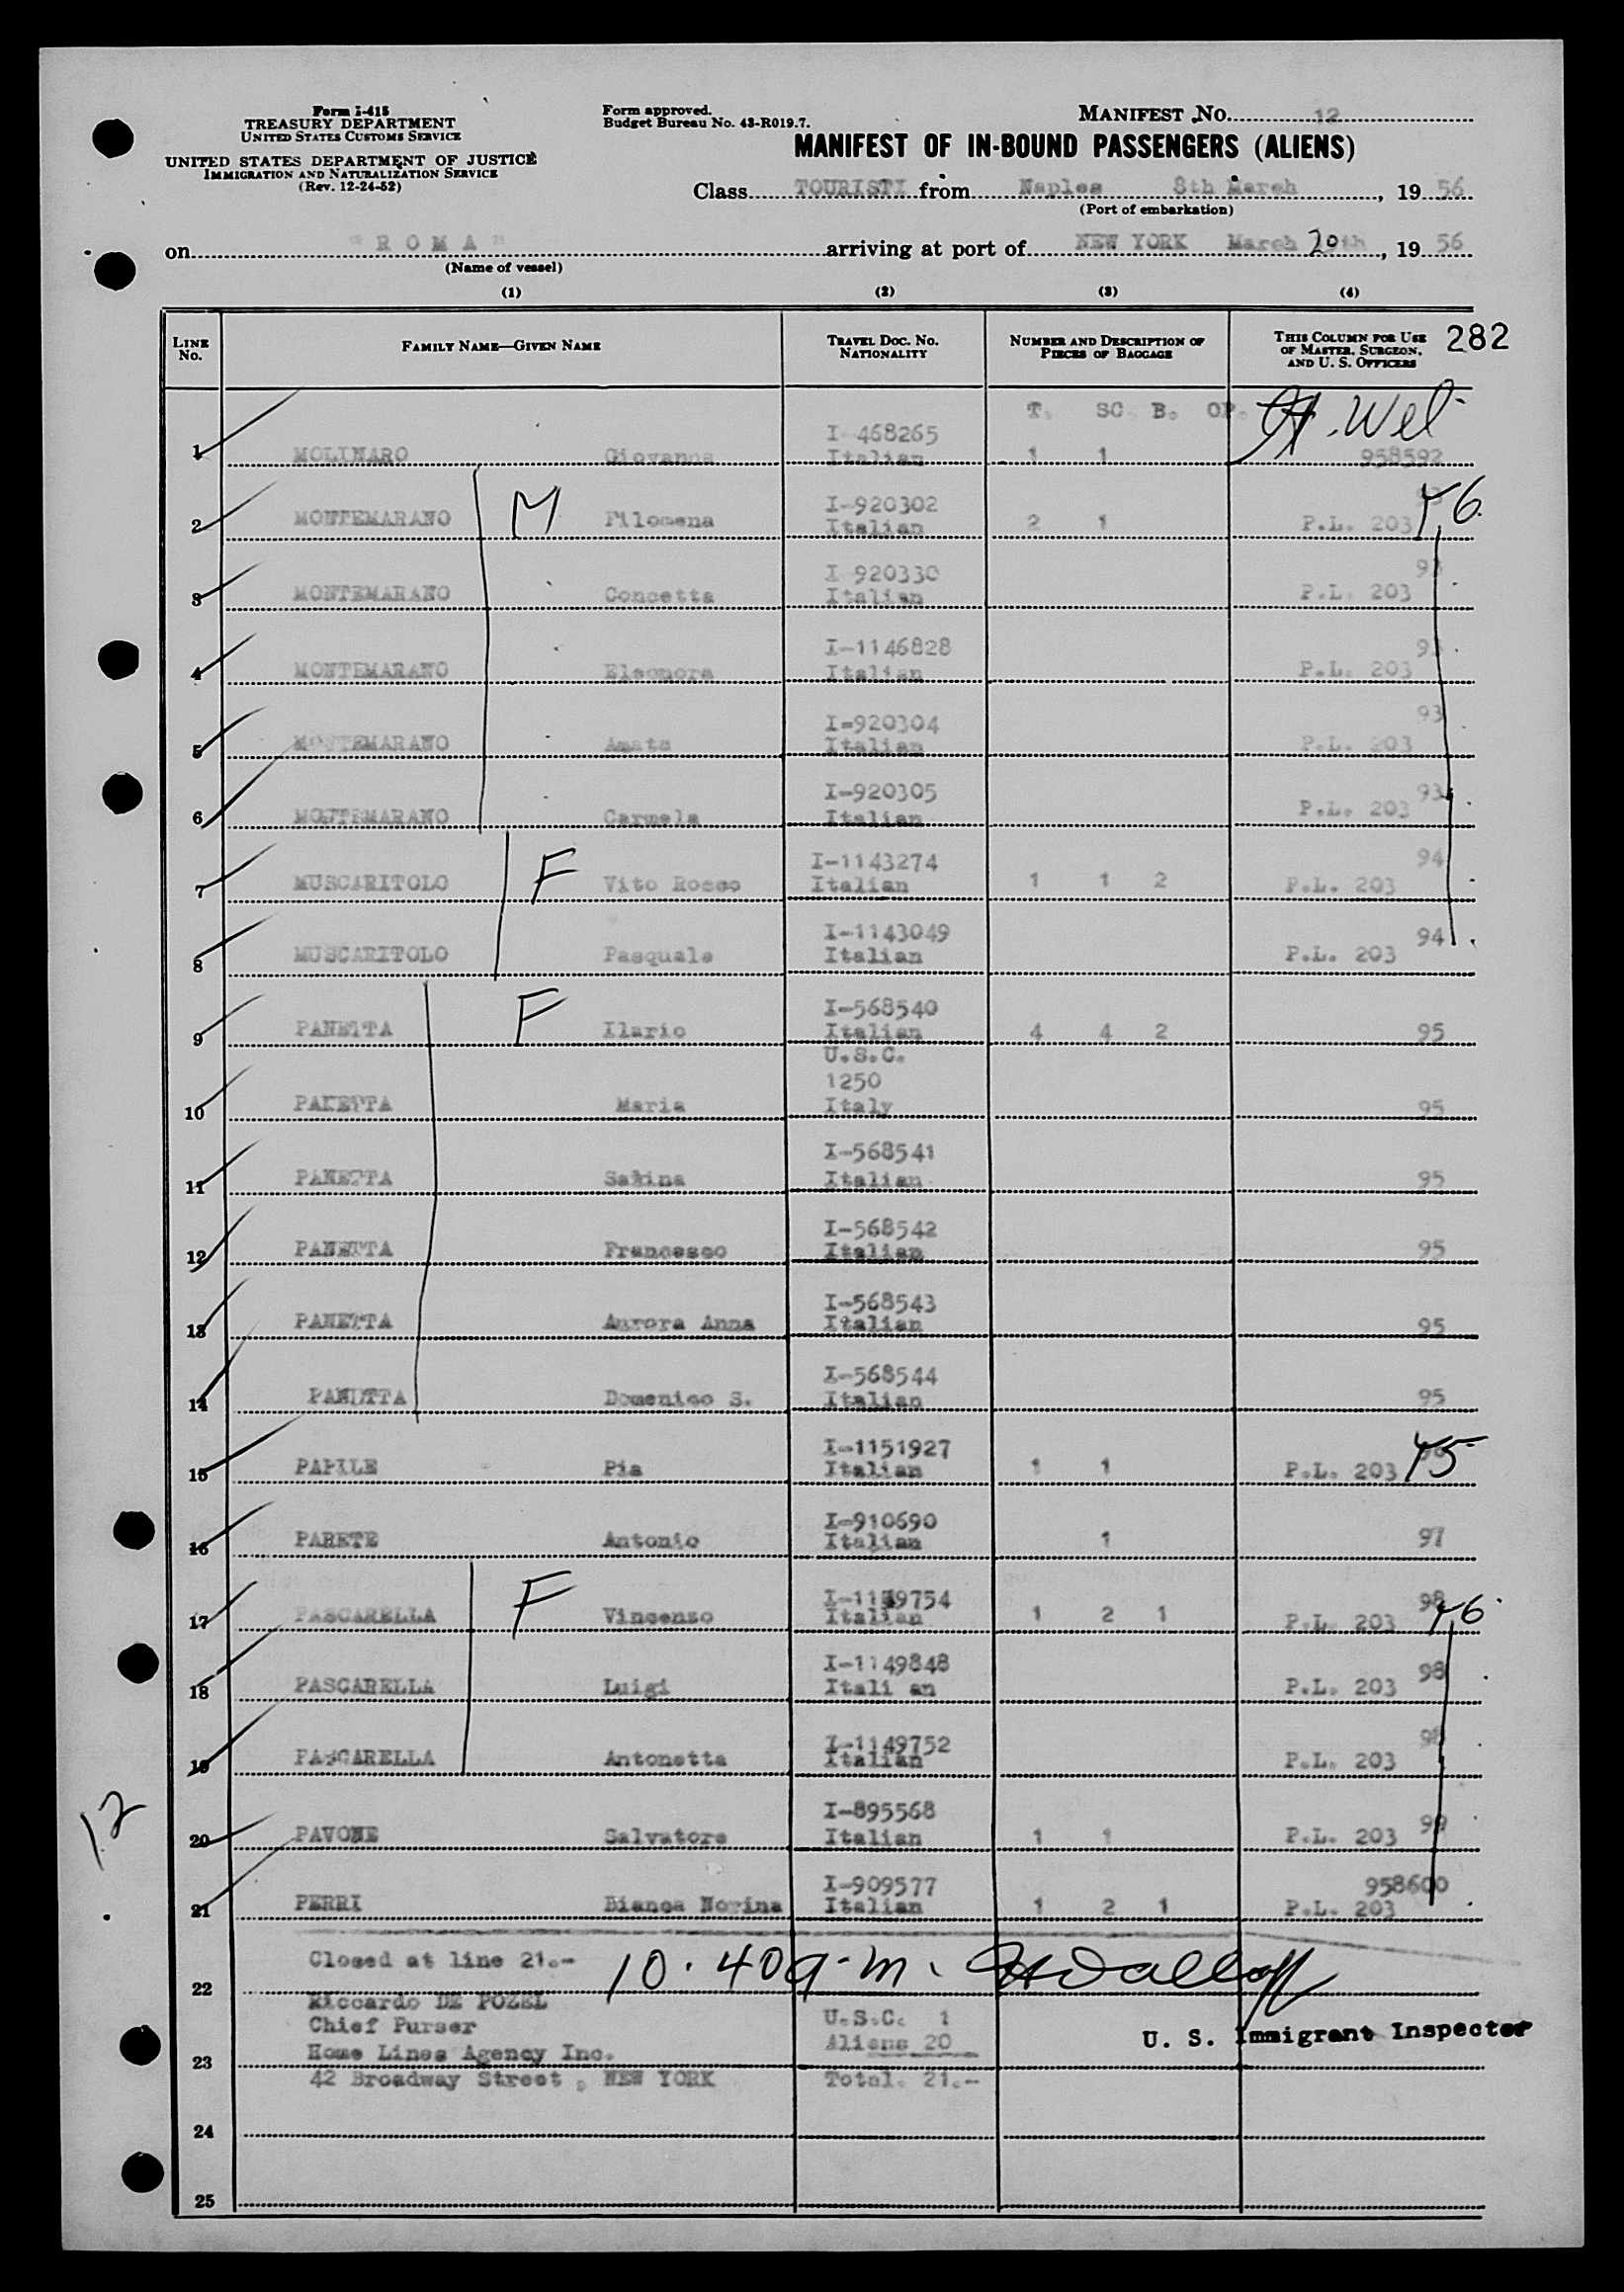 Form I-415
TREASURY DEPARTMENT
UNITED STATES CUSTOMS SERVICE
UNITED STATES DEPARTMENT OF JUSTICE
IMMIGRATION AND NATURALIZATION SERVICE
(Rev. 12-24-52)
Form approved.
Budget Bureau No. 43-R019.7.
MANIFEST NO. 12
MANIFEST OF IN-BOUND PASSENGERS (ALIENS)
Class TOURISTI from Naples 8th March, 19 56
(Port of embarkation)
on "ROMA" arriving at port of NEW YORK March 20th, 19 56
(Name of vessel)
(1) (2) (3) (4)
LINE No. FAMILY NAME—GIVEN NAME TRAVEL DOC. NO. NATIONALITY NUMBER AND DESCRIPTION OF PIECES OF BAGGAGE THIS COLUMN FOR USE OF MASTER, SURGEON, AND U. S. OFFICERS 282
T. SC. B. OP.
1 MOLINARO Giovanna I-468265 Italian 1 1 958592
2 MONTEMARANO M Filomena I-920302 Italian 2 1 P.L. 203 93
3 MONTEMARANO Concetta I-920330 Italian P.L. 203 93
4 MONTEMARANO Eleonora I-1146828 Italian P.L. 203 93
5 MONTEMARANO Amata I-920304 Italian P.L. 203 93
6 MONTEMARANO Carmela I-920305 Italian P.L. 203 93
7 MUSCARITOLO F Vito Rocco I-1143274 Italian 1 1 2 P.L. 203 94
8 MUSCARITOLO Pasquale I-1143049 Italian P.L. 203 94
9 PANETTA F Ilario I-568540 Italian 4 4 2 95
10 PANETTA Maria U.S.C. 1250 Italy 95
11 PANETTA Sabina I-568541 Italian 95
12 PANETTA Francesco I-568542 Italian 95
13 PANETTA Aurora Anna I-568543 Italian 95
14 PANETTA Domenico S. I-568544 Italian 95
15 PAPILE Pia I-1151927 Italian 1 1 P.L. 203
16 PARETE Antonio I-910690 Italian 1 97
17 PASCARELLA F Vincenzo I-1149754 Italian 1 2 1 P.L. 203 98
18 PASCARELLA Luigi I-1149848 Itali an P.L. 203 98
19 PASCARELLA Antonetta I-1149752 Italian P.L. 203 98
20 PAVONE Salvatore I-895568 Italian 1 1 P.L. 203 99
21 PERRI Bianca Norina I-909577 Italian 1 2 1 958600 P.L. 203
12
Closed at line 21.- 10.40 a.m.
22
Riccardo DE POZEL
Chief Purser U.S.C. 1
U. S. Immigrant Inspector
Home Lines Agency Inc. Aliens 20
23
42 Broadway Street, NEW YORK Total. 21.-
24
25